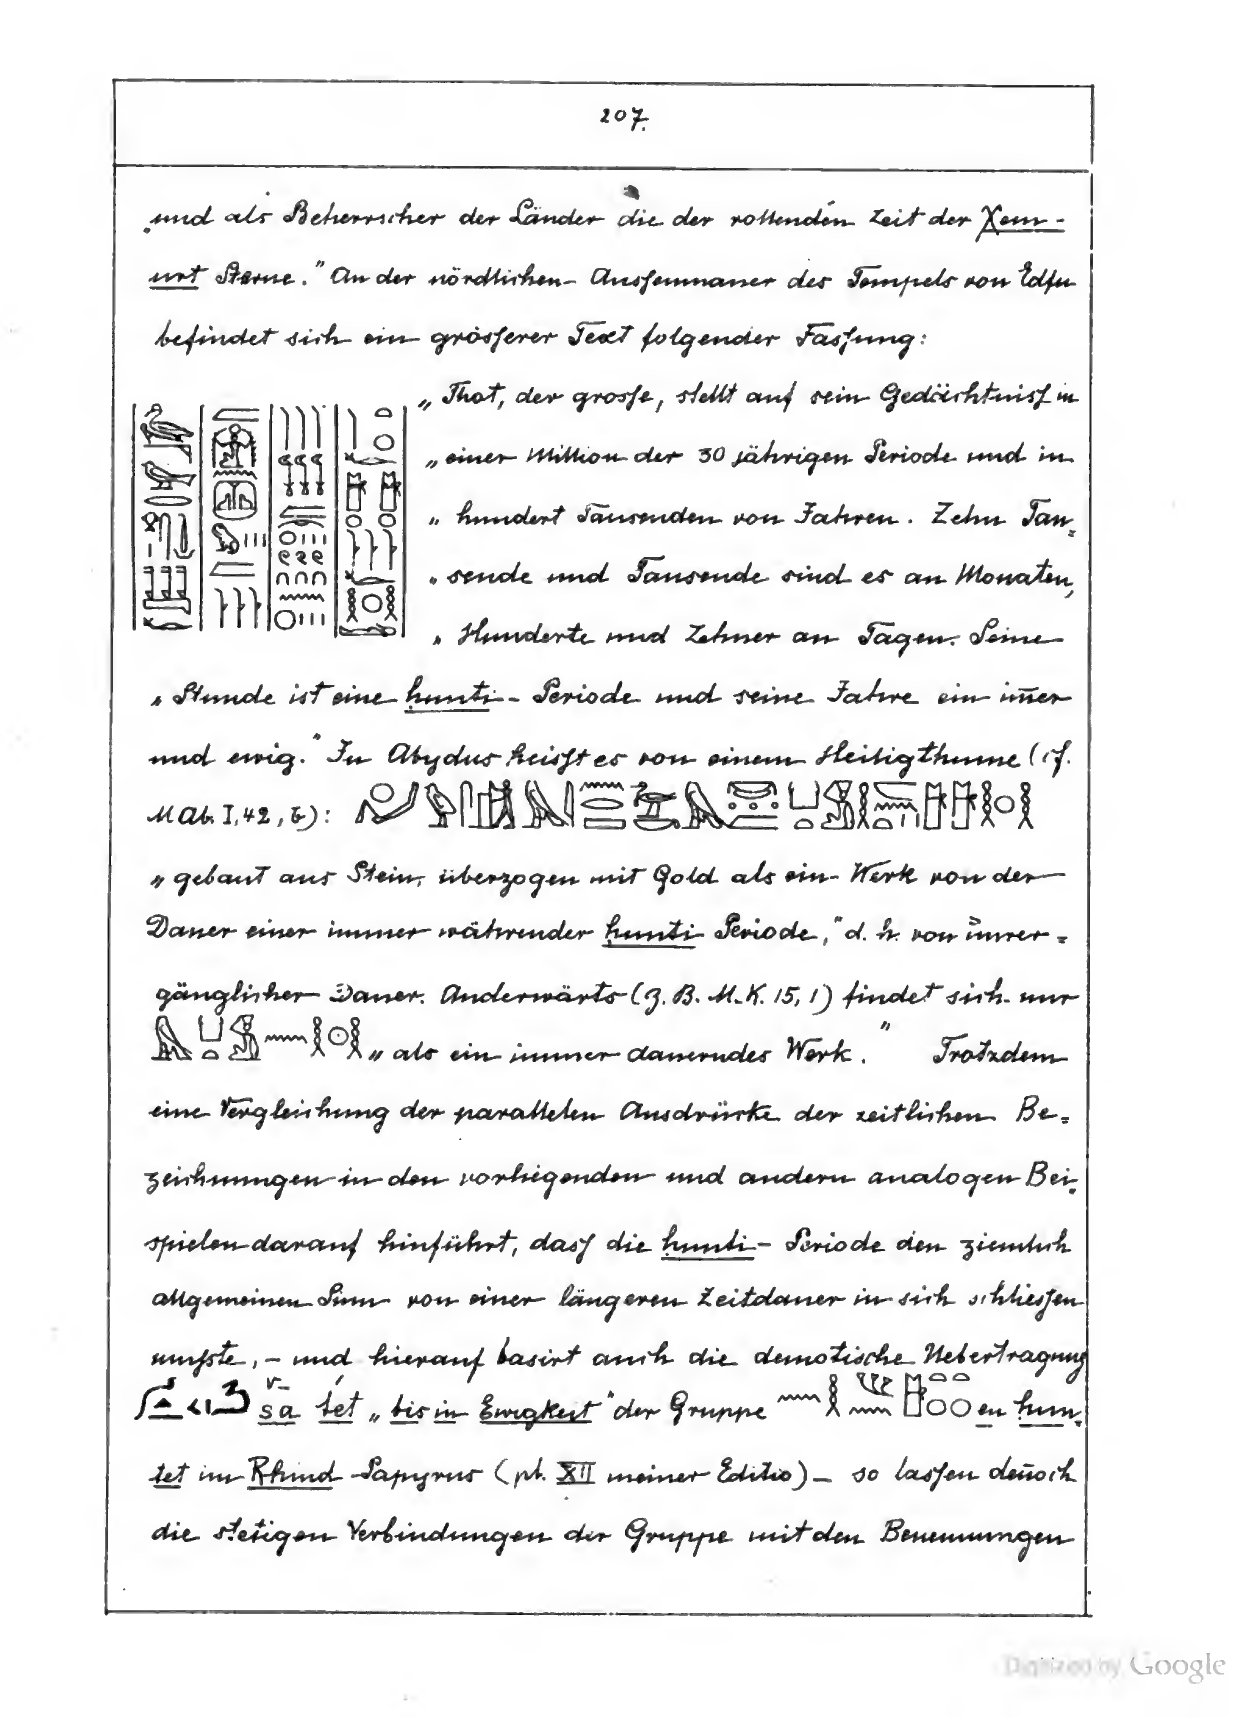 207.
„und als Beherrscher der Länder die der rollenden Zeit der Xem-
urt Sterne." An der nördlichen Aussenmauer des Tempels von Edfu
befindet sich ein grösserer Text folgender Fassung:
„Thot, der grosse, stellt auf sein Gedächtniss in
„einer Million der 30 jährigen Periode und in
„hundert Tausenden von Jahren. Zehn Tau=
„sende und Tausende sind es an Monaten,
„Hunderte und Zehner an Tagen. Seine
„Stunde ist eine ḥunti-Periode und seine Jahre ein im̄er
und ewig." In Abydus heisst es von einem Heiligthume (cf.
M Ab. I, 42, b):
„gebaut aus Stein, überzogen mit Gold als ein Werk von der
Dauer einer immer währender ḥunti Periode," d. h. von unver=
gänglicher Dauer. Anderwärts (z. B. M. K. 15, 1) findet sich nur
„als ein immer dauerndes Werk." Trotzdem
eine Vergleichung der parallelen Ausdrücke der zeitlichen Be=
zeichnungen in den vorliegenden und andern analogen Bei=
spielen darauf hinführt, dass die ḥunti-Periode den ziemlich
allgemeinen Sinn von einer längeren Zeitdauer in sich schliessen
musste, – und hierauf basirt auch die demotische Uebertragung
ša tét „bis in Ewigkeit" der Gruppe en ḥun=
tet im Rhind-Papyrus (pl. XII meiner Editio) – so lassen den̄och
die stetigen Verbindungen der Gruppe mit den Benennungen
Digitized by Google